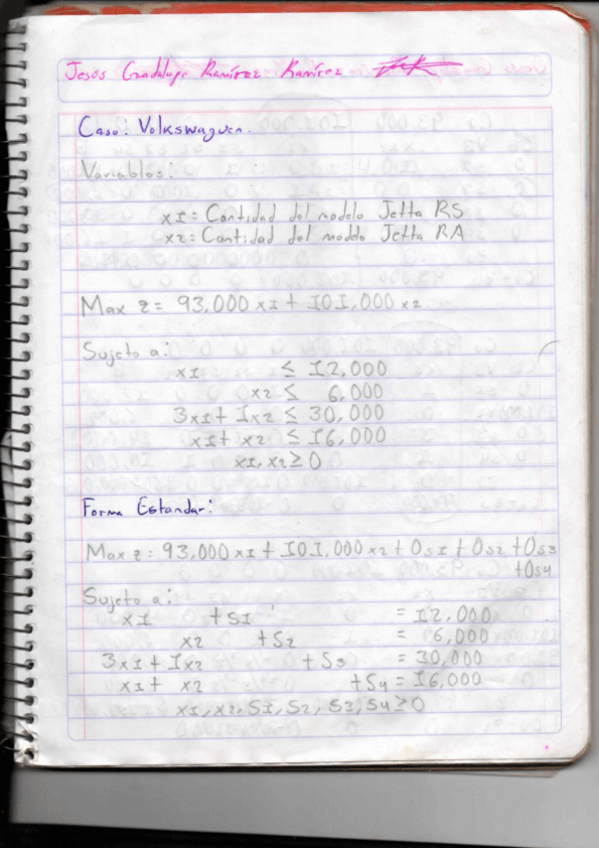 Jesús Guadalupe Ramírez Ramírez
Caso: Volkswaguen.
Variables:
x1 = Cantidad del modelo Jetta RS
x2 = Cantidad del modelo Jetta RA
Max z = 93,000 x1 + 101,000 x2
Sujeto a:
x1 ≤ 12,000
x2 ≤ 6,000
3x1 + 1x2 ≤ 30,000
x1 + x2 ≤ 16,000
x1, x2 ≥ 0
Forma Estandar:
Max z = 93,000 x1 + 101,000 x2 + 0s1 + 0s2 + 0s3
+0s4
Sujeto a:
x1 + S1 = 12,000
x2 + S2 = 6,000
3x1 + 1x2 + S3 = 30,000
x1 + x2 + S4 = 16,000
x1, x2, S1, S2, S3, S4 ≥ 0